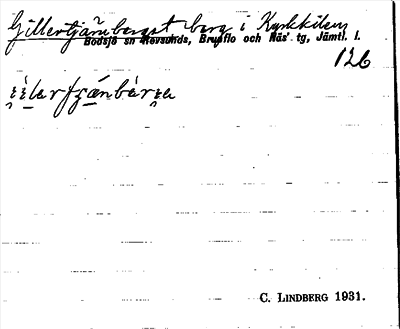 Gillertjärnberget berg i Kyrkkilen
Bodsjö sn Revsunds, Brunflo och Näs' tg, Jämtl. l.
126
C. LINDBERG 1931.